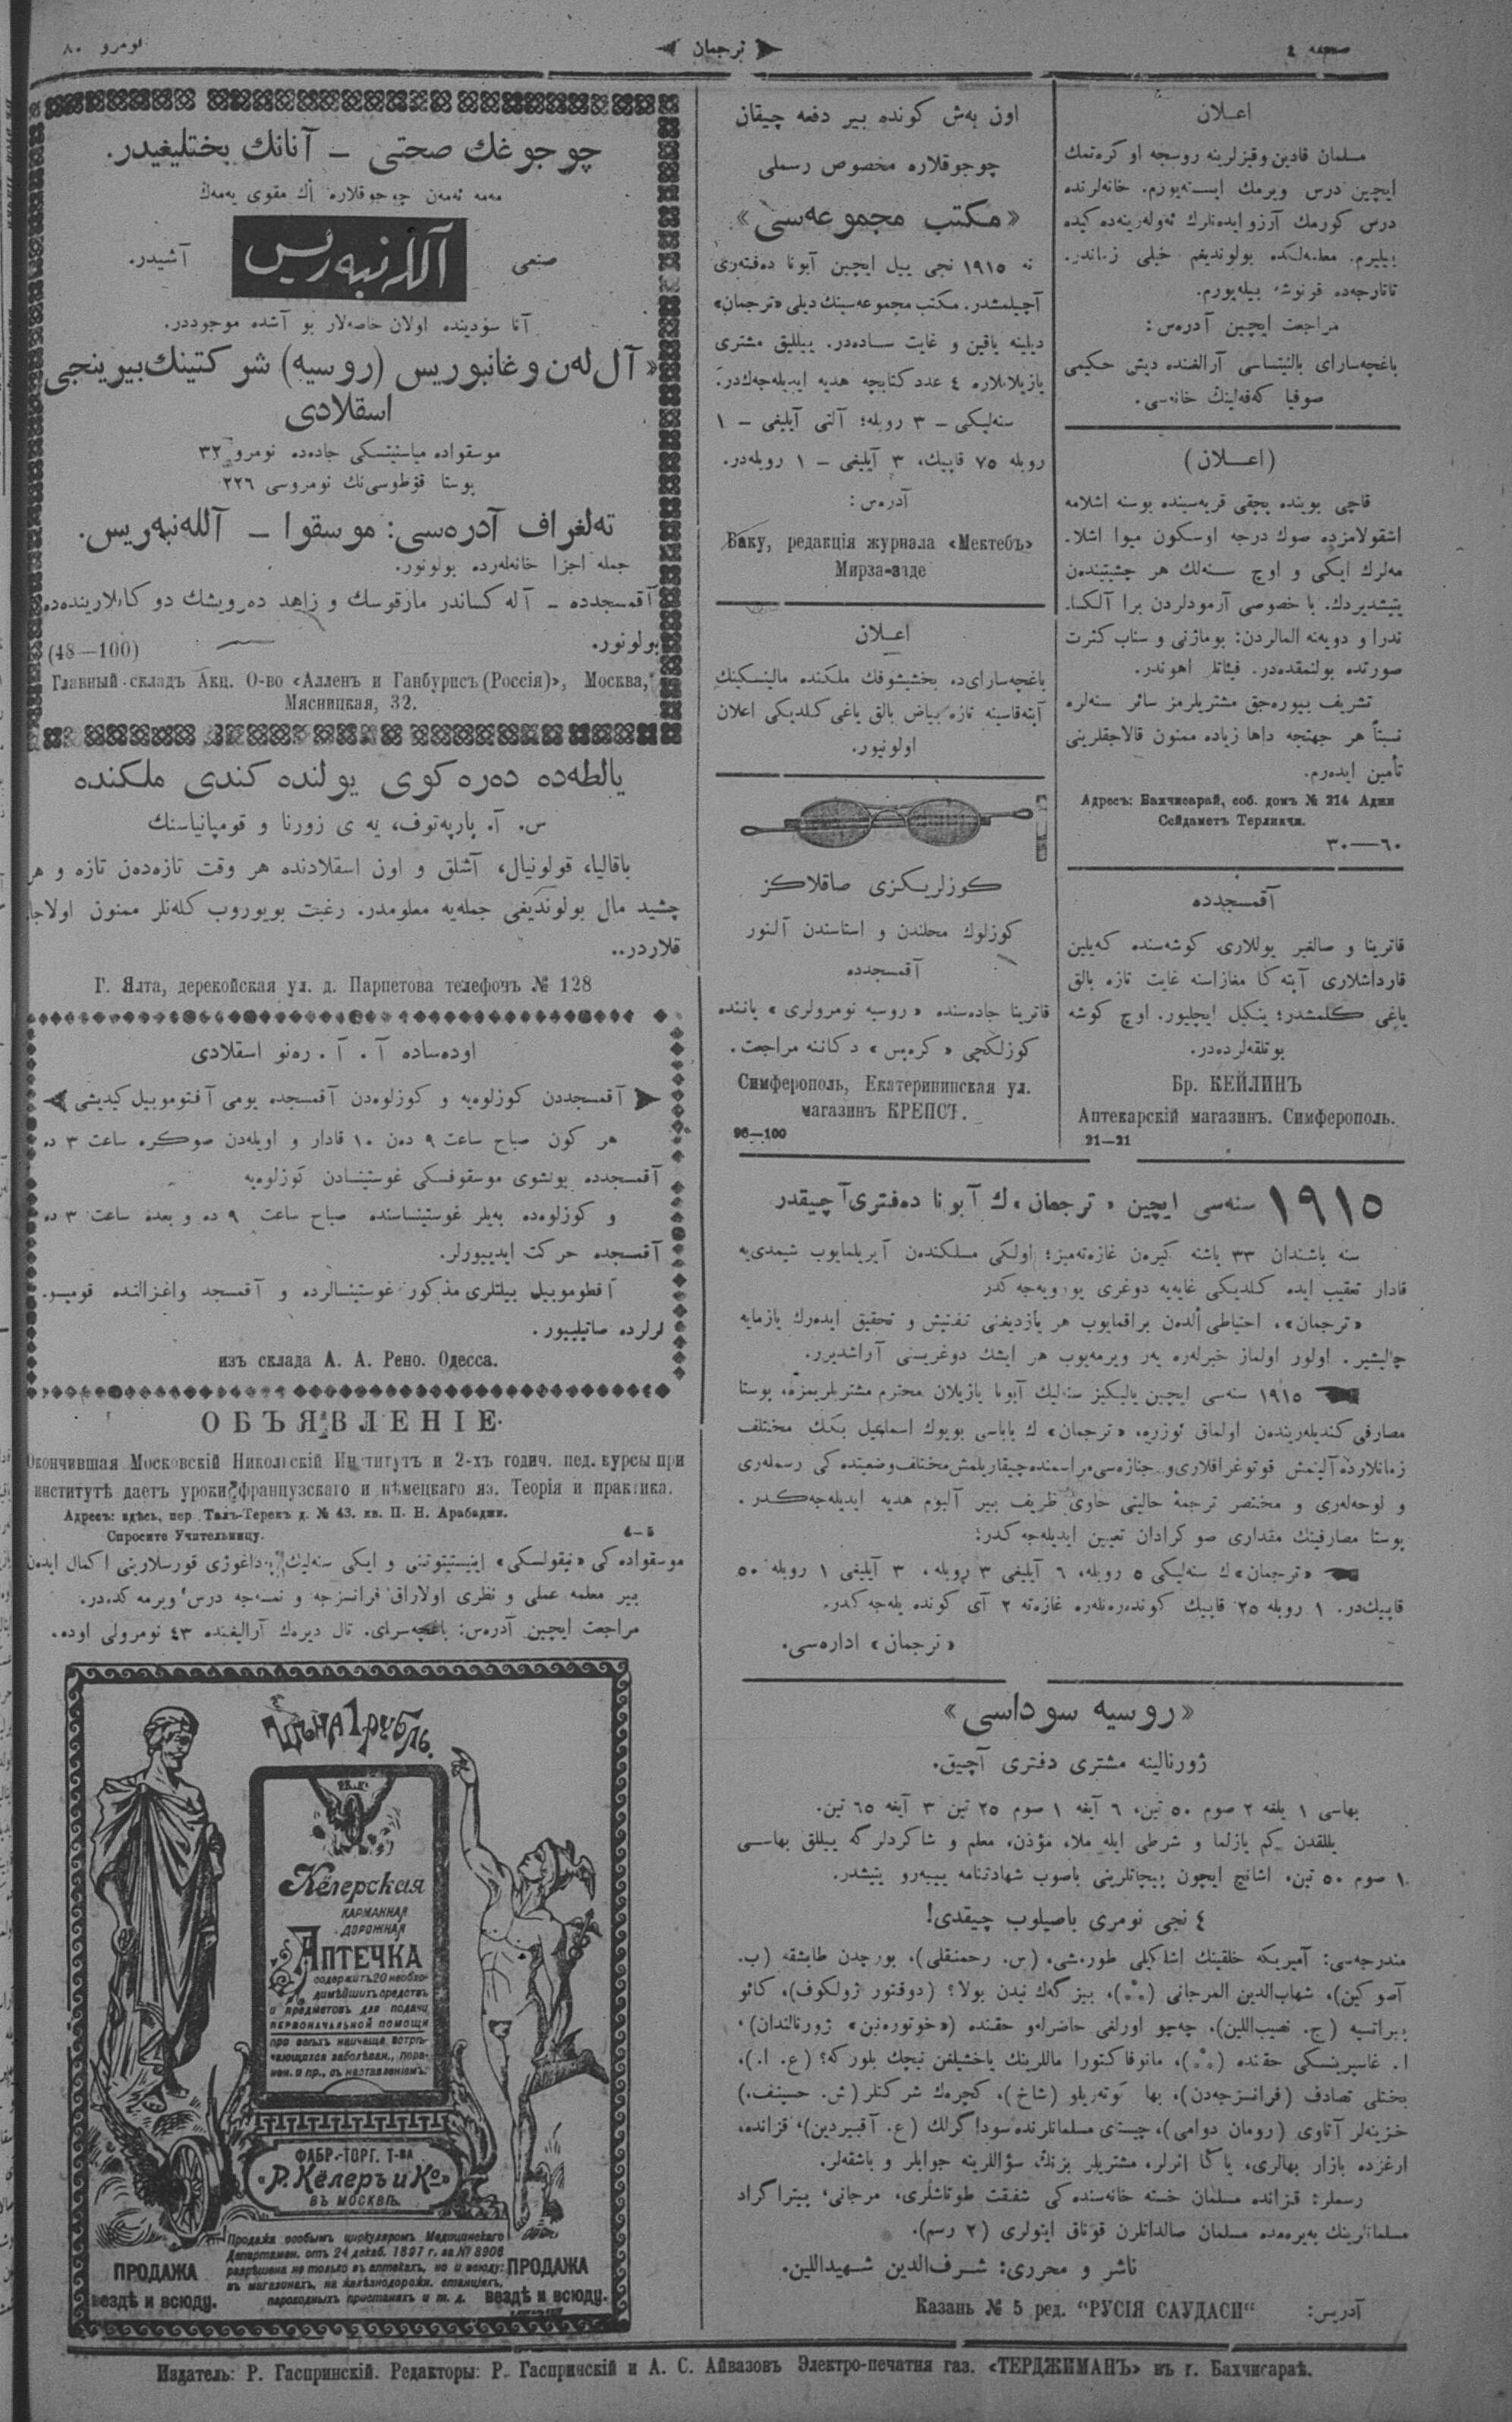 صحیفه ٤
ترجمان
نومرو ٨٠
اعلان
مسلمان قادین وقیزلرینه روسجه اوگره‌تمك
ایچین درس ویرمك ایسته‌یورم. خانه‌لرنده
درس کورمك آرزو ایده‌نلرك ئه‌ولرینه‌ده کیده
بیلیرم. معلمه‌لکده بولوندیغم خیلی زماندر.
تاتارجه‌ده قونوشه بیله‌یورم.
مراجعت ایچین آدره‌س:
باغچه‌سارای
آرالغنده دیش حکیمی
صوفیا که‌فه‌لینڭ خانه‌سی.
(اعلان)
قاچی بوینده بچقی قریه‌سینده بوسنه اشلامه
اشقولامزده صوك درجه اوسکون میوا اشلا.
مه‌لرك ایکی و اوچ سنه‌لك هر چشیتیندن
یتیشدیردك. با خصوصی آرمودلردن برا آلکسا.
ندرا و دویه‌نه المالردن: بومازنی و سناب کثرت
صورتده بولنمقده‌در. فیئاتلر اهوندر.
تشریف بیوره‌جق مشتریلرمز سائر سنه‌لره
نسبتاً هر جهتجه داها زیاده ممنون قالاجقلرینی
تأمین ایده‌رم.
Адресъ: Бахчисарай, соб. домъ № 214 Аджи
Сейдаметъ Терликчи.
٦٠—٣٠
آقمسجدده
قاترینا و صالغیر یوللاری کوشه‌سنده که‌یلین
قارداشلاری آپته‌کا مغازاسنه غایت تازه بالق
یاغی کلمشدر؛ یتکیل ایچلیور. اوچ کوشه
بوتلقه‌لرده‌در.
Бр. КЕЙЛИНЪ
Аптекарскій магазинъ. Симферополь.
21—21
اون به‌ش کونده بیر دفعه چیقان
چوجوقلاره مخصوص رسملی
«مکتب مجموعه‌سی»
نه ١٩١٥ نجی ییل ایچین آبونا ده‌فته‌ری
آچیلمشدر. مکتب مجموعه‌سینك دیلی «ترجمان»
دیلینه یاقین و غایت ساده‌در. ییللیق مشتری
یازیلانلاره ٤ عدد کتابچه هدیه ایدیله‌جه‌كدر.
سنه‌لیکی – ٣ روبله؛ آلتی آیلیغی – ١
روبله ٧٥ قاپیك، ٣ آیلیغی – ١ روبله‌در.
آدره‌س:
Баку, редакція журнала «Мектебъ»
Мирза-заде
اعلان
باغچه‌سارای‌ده بخشیشوفك ملکنده مالینسکینك
آپته‌قاسینه تازه بیاض بالق یاغی کلدیکی اعلان
اولونیور.
کوزلریکزی صاقلاکز
کوزلوك محلندن و استاسندن آلنور
آقمسجدده
قاترینا جاده‌سنده «روسیه نومرولری» یاننده
کوزلکچی «کره‌پس» دکاننه مراجعت.
Симферополь, Екатерининская ул.
магазинъ КРЕПСЪ.
96—100
١٩١٥ سنه‌سی ایچین «ترجمان»ك آبونا ده‌فتری آچیقدر
سنه باشندان ٣٣ یاشنه کیره‌ن غازه‌ته‌میز؛ اولکی مسلکندن آیریلمایوب شیمدی‌یه
قادار تعقیب ایده کلدیکی غایه‌یه دوغری یورویه‌جه‌کدر
«ترجمان»، احتیاطی ألده‌ن براقمایوب هر یازدیغنی تفتیش و تحقیق ایده‌رك یازمایه
چالیشیر. اولور اولماز خبرلره یه‌ر ویرمه‌یوب هر ایشك دوغریسنی آراشدیرر.
١٩١٥ سنه‌سی ایچین یالیکیز سنه‌لیك آبونا یازیلان محترم مشتریلریمزه، پوستا
مصارفی کندیله‌ریندن اولماق ئوزره، «ترجمان»ك باباسی بویوك اسماعیل بکك مختلف
زمانلارده آلینمش فوتوغرافلاری و جنازه‌سی مراسمنده چیقاریلمش مختلف وضعیتده کی رسمله‌ری
و لوحه‌له‌ری و مختصر ترجمهٔ حالینی حاوی ظریف بیر آلبوم هدیه ایدیله‌جه‌کدر.
پوستا مصارفینك مقداری صوکرادان تعیین ایدیله‌جه‌کدر؛
«ترجمان»ك سنه‌لیکی ٥ روبله، ٦ آیلیغی ٣ روبله، ٣ آیلیغی ١ روبله ٥٠
قاپیك‌در. ١ روبله ٢٥ قاپیك کونده‌ره‌نلره غازه‌ته ٢ آی کونده‌ریله‌جه‌کدر.
«ترجمان» اداره‌سی.
«روسیه سوداسی»
ژورنالینه مشتری دفتری آچیق.
بهاسی ١ یلغه ٢ صوم ٥٠ تین، ٦ آیغه ١ صوم ٢٥ تین ٣ آیغه ٦٥ تین.
یللقدن کم یازلما و شرطی ایله ملا، مؤذن، معلم و شاکردلرگه ییللق بهاسی
١ صوم ٥٠ تین. اشانچ ایچون پیچاتلرینی باصوب شهادتنامه ییبه‌رو یتیشدر.
٤ نجی نومری باصیلوب چیقدی!
مندرجه‌سی: آمیریکه خلقینك اشلکلی طورمشی، (س. رحمنقلی)، بورچدن طابشقه (ب.
آصوکین)، شهاب‌الدین المرجانی (⁂)، بیز گه‌ك نیدن بولا؟ (دوقتور ژولکوف)،
(ج. نصیب‌اللین)، چه‌چو اورلغی حاضرله‌و حقنده («خوتوره‌نین» ژورنالندان)،
ا. غاسپرینسکی حقنده (⁂)، مانوفاکتورا ماللرینك یاخشیلغن نیچك بلورکه؟ (ع. ا.)،
بختلی تصادف (فرانسزجه‌دن)، بها کوته‌ریلو (شاخ)، کچره‌ك شرکتلر (ش. حسینف،)
خزینه‌لر آتاوی (رومان دوامی)، چیستای مسلمانلرنده سوداگرلك (ع. آقبیردین)، قزانده،
ارغزده بازار بهالری، یاڭا اثرلر، مشتریلر بزنڭ سؤاللرینه جوابلر و باشقه‌لر.
رسملر: قزانده مسلمان خسته خانه‌سنده کی شفقت طوتاشلری، مرجانی، پیتراگراد
مسلمانلرینك بیره‌مده مسلمان صالداتلرن قوناق ایتولری (٢ رسم).
ناشر و محرری: شرف‌الدین شهیداللین.
آدریس: Казань № 5 ред. “РУСІЯ САУДАСИ“
چوجوغك صحتی – آنانك بختلیغیدر.
مه‌مه ئه‌مه‌ن چوجوقلاره أك مقوی یه‌مه‌ك
صنعی آلله‌نبه‌ریس آشیدر.
آنا سؤدینده اولان خاصه‌لار بو آشده موجوددر.
«آل‌له‌ن و غانبوریس (روسیه) شرکتینك بیرینجی
اسقلادی
موسقواده میاسنیتسکی جاده‌ده نومرو ٣٢
پوستا قوطوسی‌نك نومروسی ٢٢٦
ته‌لغراف آدره‌سی: موسقوا – آلله‌نبه‌ریس.
جمله اجزا خانه‌لرده بولونور.
آقمسجدده – آله‌کساندر مارقوسك و زاهد ده‌رویشك دوکانلارینده‌ده
بولونور.
(48—100)
Главный складъ Акц. О-во «Алленъ и Ганбурисъ (Россія)», Москва,
Мясницкая, 32.
یالطه‌ده ده‌ره‌کوی یولنده کندی ملکنده
س. آ. پارپه‌توف، یه ی زورنا و قومپانیاسنك
باقالیا، قولونیال، آشلق و اون اسقلادنده هر وقت تازه‌ده‌ن تازه و هر
چشید مال بولوندیغی جمله‌یه معلومدر. رغبت بویوروب کله‌نلر ممنون اولاجا
قلاردر..
Г. Ялта, дерекойская ул. д. Парпетова телефонъ № 128
اوده‌ساده آ. آ. ره‌نو اسقلادی
آقمسجددن کوزلوه‌یه و کوزلوه‌دن آقمسجده یومی آفتوموبیل کیدیشی
هر کون صباح ساعت ٩ ده‌ن ١٠ قادار و اویله‌دن صوکره ساعت ٣ ده
آقمسجدده بولشوی موسقوفسکی غوستینسادن کوزلوه‌یه
و کوزلوه‌ده به‌یلر غوستینساسنده صباح ساعت ٩ ده و بعده ساعت ٣ ده
آقمسجده حرکت ایدییورلر.
آفطوموبیل بیلتلری مذکور غوستینسالرده و آقمسجد واغزالنده قومیسو.
نرلرده صاتیلییور.
изъ склада А. А. Рено. Одесса.
ОБЪЯВЛЕНІЕ
Окончившая Московскій Николіскій Институтъ и 2-хъ годич. пед. курсы при
институтѣ даетъ уроки французскаго и нѣмецкаго яз. Теорія и практика.
Адресъ: здѣсь, пер. Талъ-Терекъ д. № 43. кв. П. Н. Арабаджи.
Спросить Учительницу.
4—5
موسقواده‌کی «نیقولسکی» اینستیتوتنی و ایکی سنه‌لیك پداغوژی قورسلارینی اکمال ایده‌ن
بیر معلمه عملی و نظری اولاراق فرانسزجه و نمسه‌جه درس ویرمه‌کده‌در.
مراجعت ایچین آدره‌س: باغچه‌سرای. تال دیره‌ك آرالیغنده ٤٣ نومرولی اوده.
ЦѢНА 1 РУБЛЬ.
Кёлерская
КАРМАННАЯ
ДОРОЖНАЯ
АПТЕЧКА
содержитъ 20 необхо-
димѣйшихъ средствъ
и предметовъ для подачи
ПЕРВОНАЧАЛЬНОЙ ПОМОЩИ
при всѣхъ наичаще встрѣ-
чающихся заболѣван., пора-
нен. и пр., съ наставленіемъ.
ФАБР.-ТОРГ. Т-ВА
«Р. Кёлеръ и Ко»
ВЪ МОСКВѢ.
Продажа особымъ циркуляромъ Медицинскаго
Департамен. отъ 24 декаб. 1897 г. за № 8906
разрѣшена не только въ аптекахъ, но и всюду:
въ магазинахъ, на желѣзнодорожн. станціяхъ,
пароходныхъ пристаняхъ и т. д.
ПРОДАЖА
вездѣ и всюду.
ПРОДАЖА
вездѣ и всюду.
Издатель: Р. Гаспринскій. Редакторы: Р. Гаспринскій и А. С. Айвазовъ Электро-печатня газ. «ТЕРДЖИМАНЪ» въ г. Бахчисараѣ.